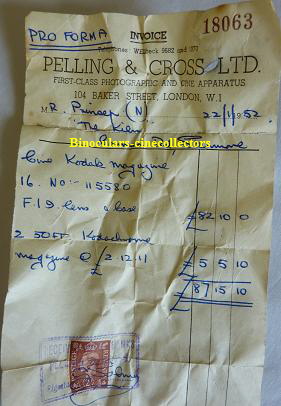 PRO FORMA
INVOICE
18063
Telephones: Welbeck 9682 and 1170
PELLING & CROSS LTD.
FIRST-CLASS PHOTOGRAPHIC AND CINE APPARATUS
104 BAKER STREET, LONDON, W.1
M R. Prinsep (N) 22/1/1952.
"The Kiln"
Binoculars-cinecollectors
Cine Kodak magazine
16. No:- 115580
F.1.9. lens & case £82 10 0
2 50FT Kodachrome
magazine @ £2.12.11 £5 5 10
£87 15 10